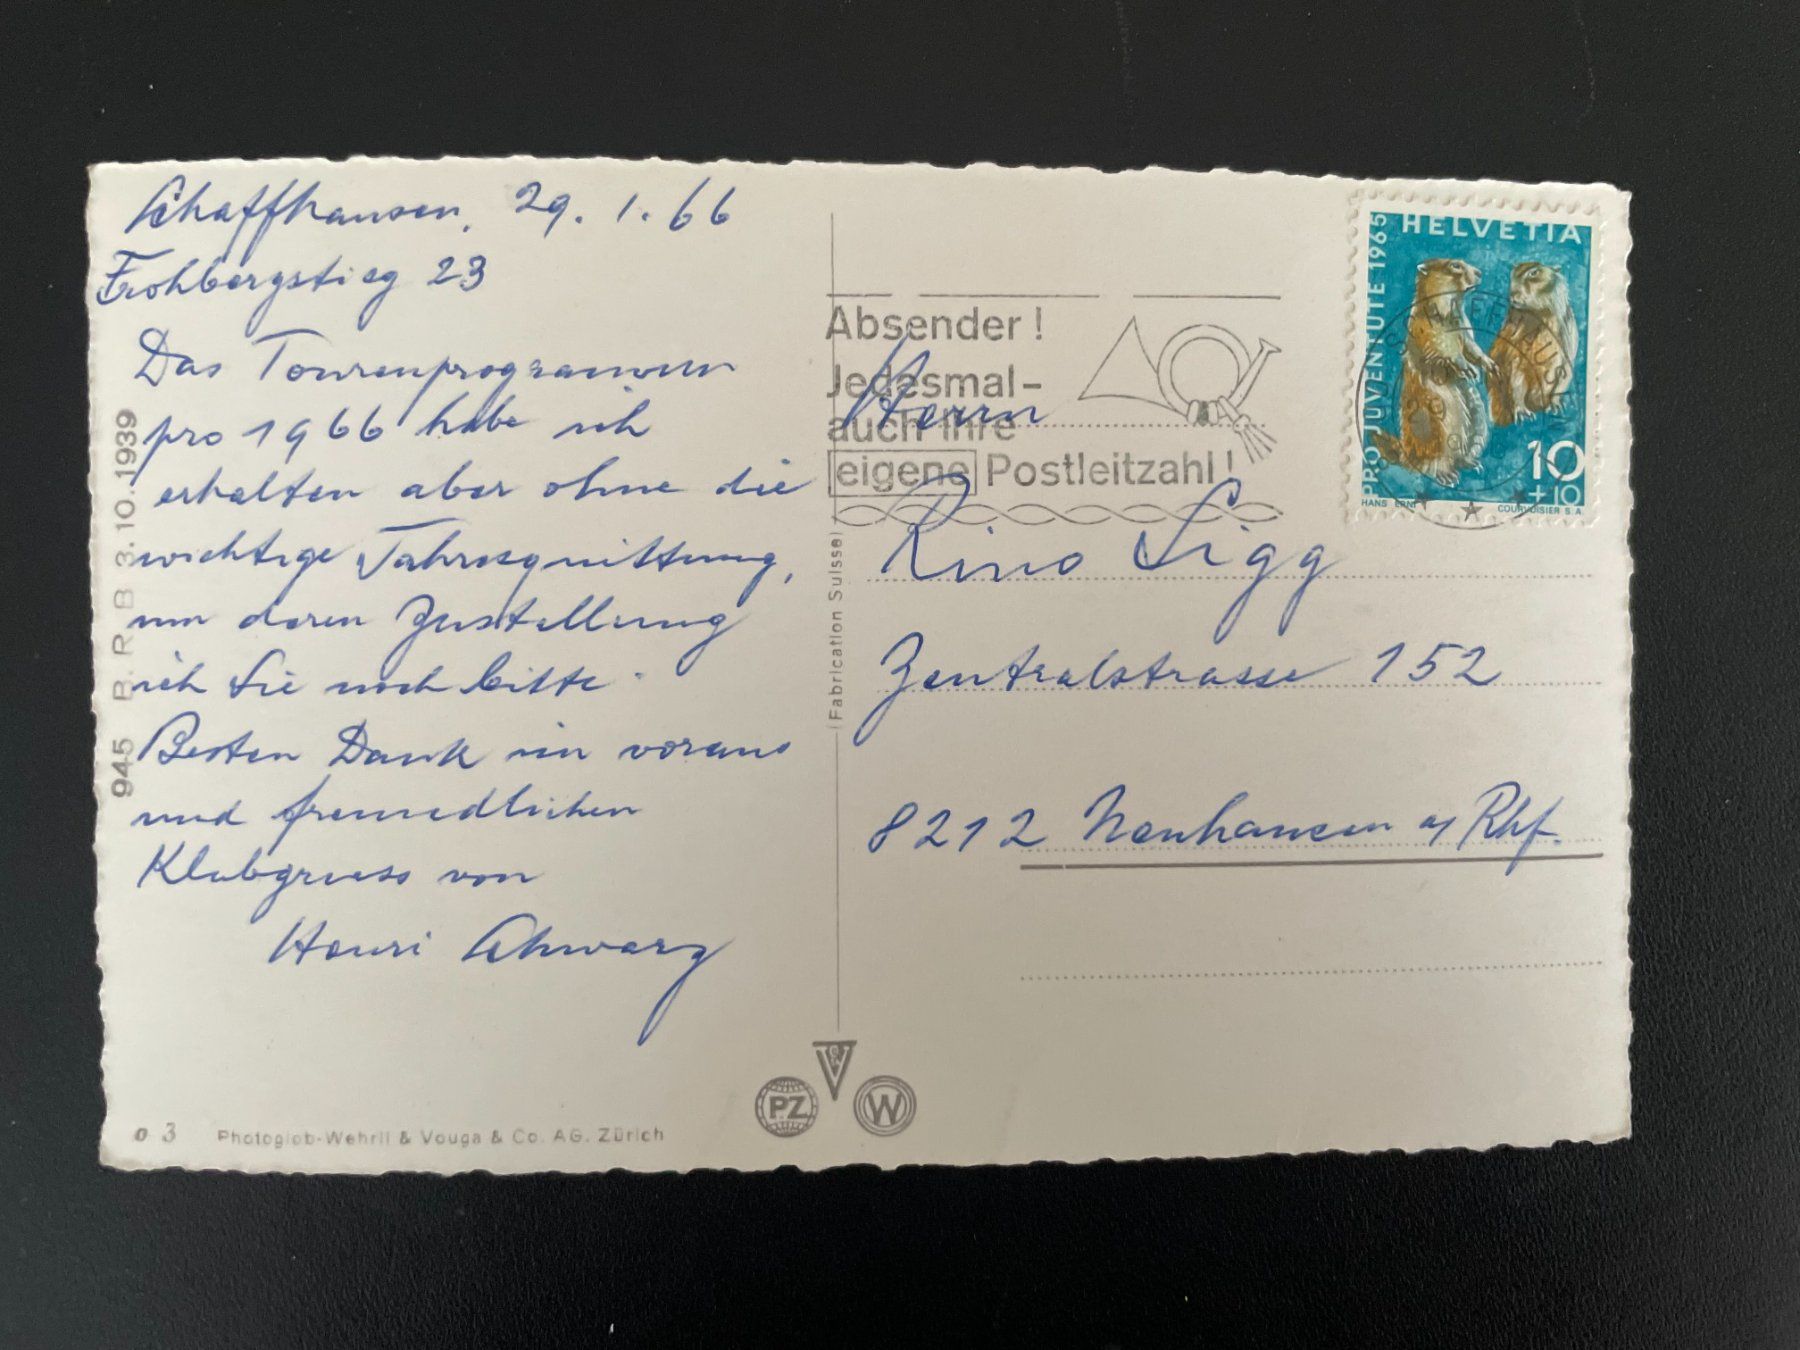 Schaffhausen, 29. 1. 66
Frohbergstieg 23
Das Tourenprogramm
pro 1966 habe ich
erhalten aber ohne die
wichtige Jahresquittung,
um deren Zustellung
ich Sie noch bitte.
Besten Dank im voraus
und freundlichen
Klubgruess von
Henri Schwarz
945 B. R B 3.10.1939
o 3 Photoglob-Wehrli & Vouga & Co. AG. Zürich
(Fabrication Suisse)
V
PZ
W
Absender!
Jedesmal-
auch Ihre
eigene Postleitzahl!
HELVETIA
PRO JUVENTUTE 1965
10
+10
HANS ERNI COURVOISIER S.A.
SCHAFFHAUSEN
Herrn
Rino Sigg
Zentralstrasse 152
8212 Neuhausen a/Rhf.